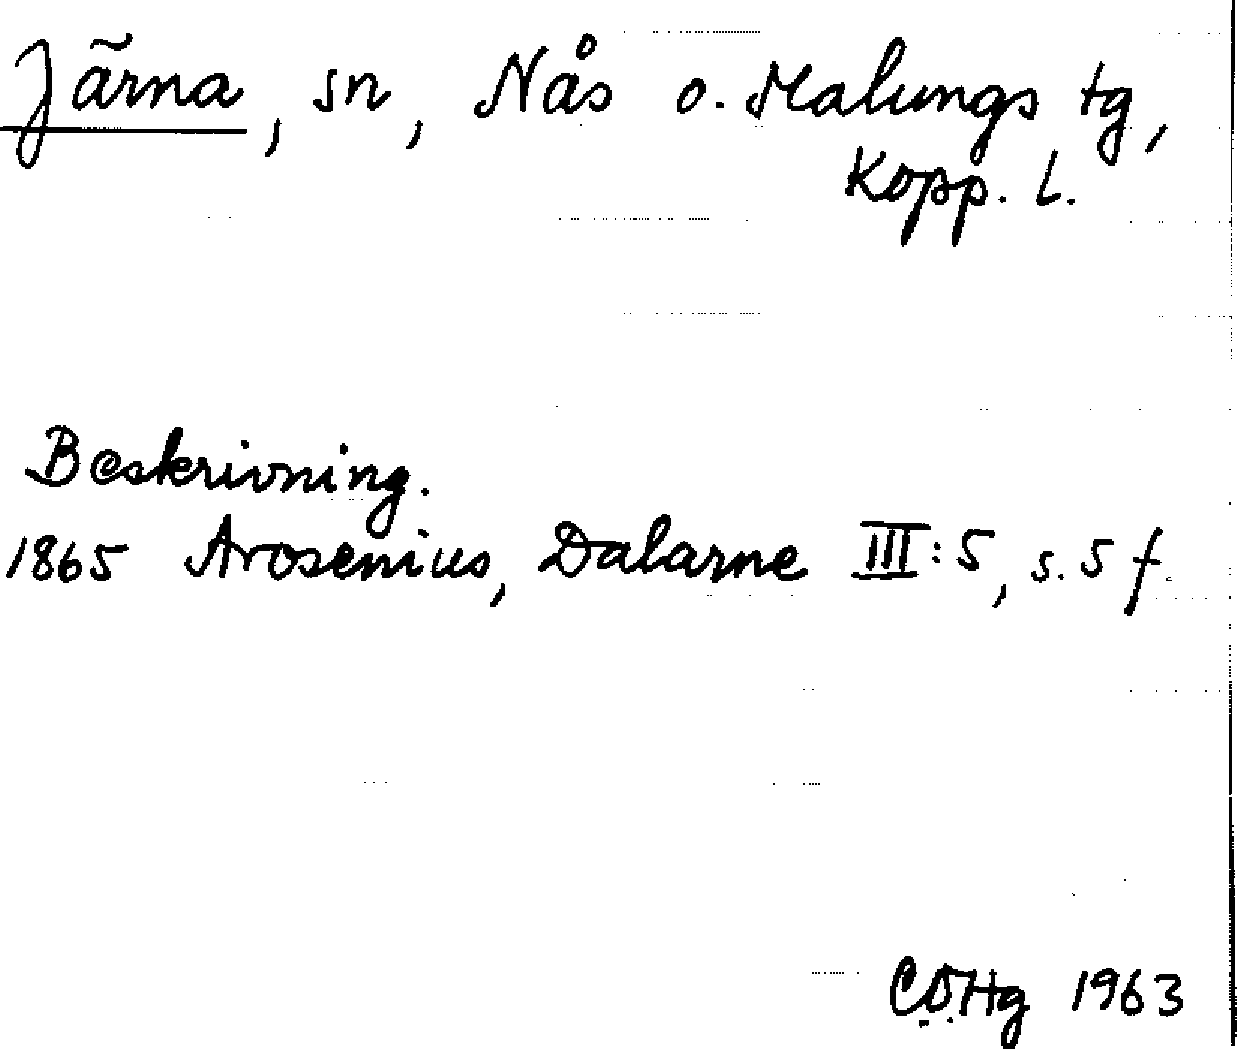 Järna, sn, Nås o. Malungs tg,
Kopp. l.
Beskrivning.
1865 Arosenius, Dalarne III:5, s. 5 f.
C.O.Hg 1963